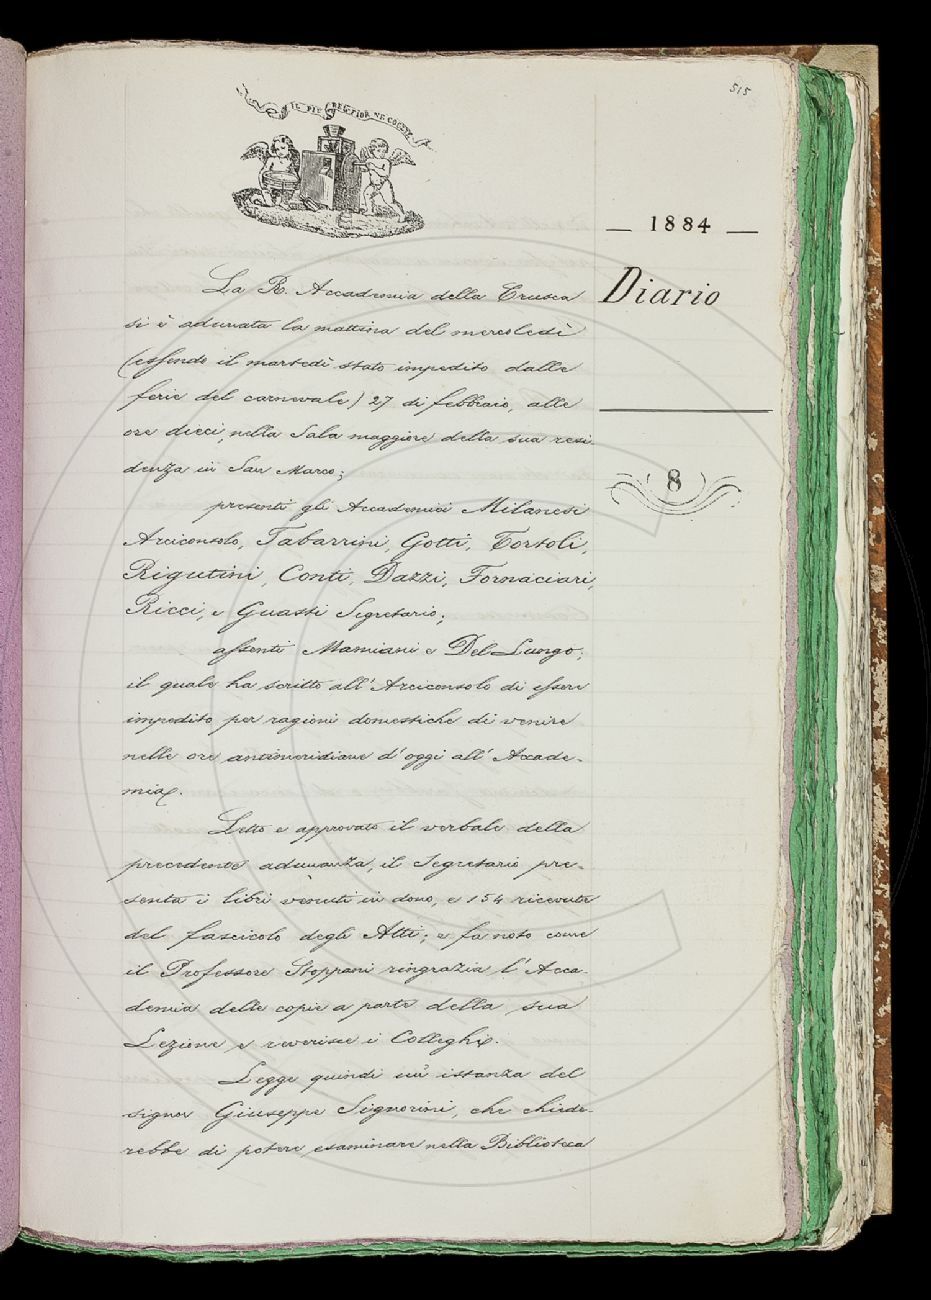 515
IL PIÙ BEL FIOR NE COGLIE
— 1884 —
Diario
8
La R. Accademia della Crusca
si è adunata la mattina del mercoledì
(essendo il martedì stato impedito dalle
ferie del carnevale) 27 di febbraio, alle
ore dieci, nella Sala maggiore della sua resi-
denza in San Marco;
presenti gli Accademici Milanesi
Arciconsolo, Tabarrini, Gotti, Tortoli,
Rigutini, Conti, Dazzi, Fornaciari,
Ricci, e Guasti Segretario;
assenti Mamiani e Del Lungo;
il quale ha scritto all'Arciconsolo di essere
impedito per ragioni domestiche di venire
nelle ore antimeridiane d'oggi all'Accade-
mia.
Letto e approvato il verbale della
precedente adunanza, il Segretario pre-
senta i libri venuti in dono, e 154 ricevute
del fascicolo degli Atti; e fa noto come
il Professore Stoppani ringrazia l'Acca-
demia delle copie a parte della sua
Lezione e riverisce i Colleghi.
Legge quindi un'istanza del
signor Giuseppe Signorini, che chiede-
rebbe di potere esaminare nella Biblioteca